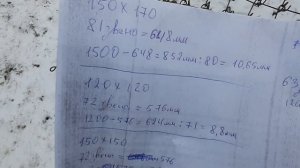 150 х 170
81 звено = 648 мм
1500 - 648 = 852 мм : 80 = 10,65 мм
120 х 120
72 звена = 576 мм
1200 - 576 = 624 мм : 71 = 8,8 мм
150 х 150
72 576